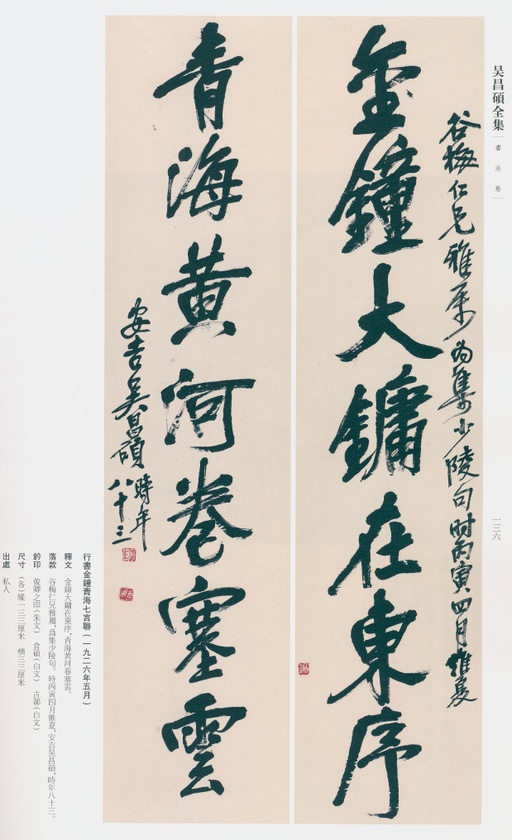 吴昌碩全集
書法卷
一三六
谷梅仁兄雅屬為集少陵句时丙寅四月維夏
金鐘大鏞在東序
青海黄河卷塞雲
安吉吴昌碩時年
八十三
行書金鐘青海七言聯（一九二六年五月）
釋文 金鐘大鏞在東序，青海黄河卷塞雲。
落款 谷梅仁兄雅屬，爲集少陵句。時丙寅四月維夏，安吉吴昌碩，時年八十三。
鈐印 俊卿之印（朱文） 倉碩（白文） 古鄣（白文）
尺寸 （各）縱一三三厘米 橫三三厘米
出處 私人